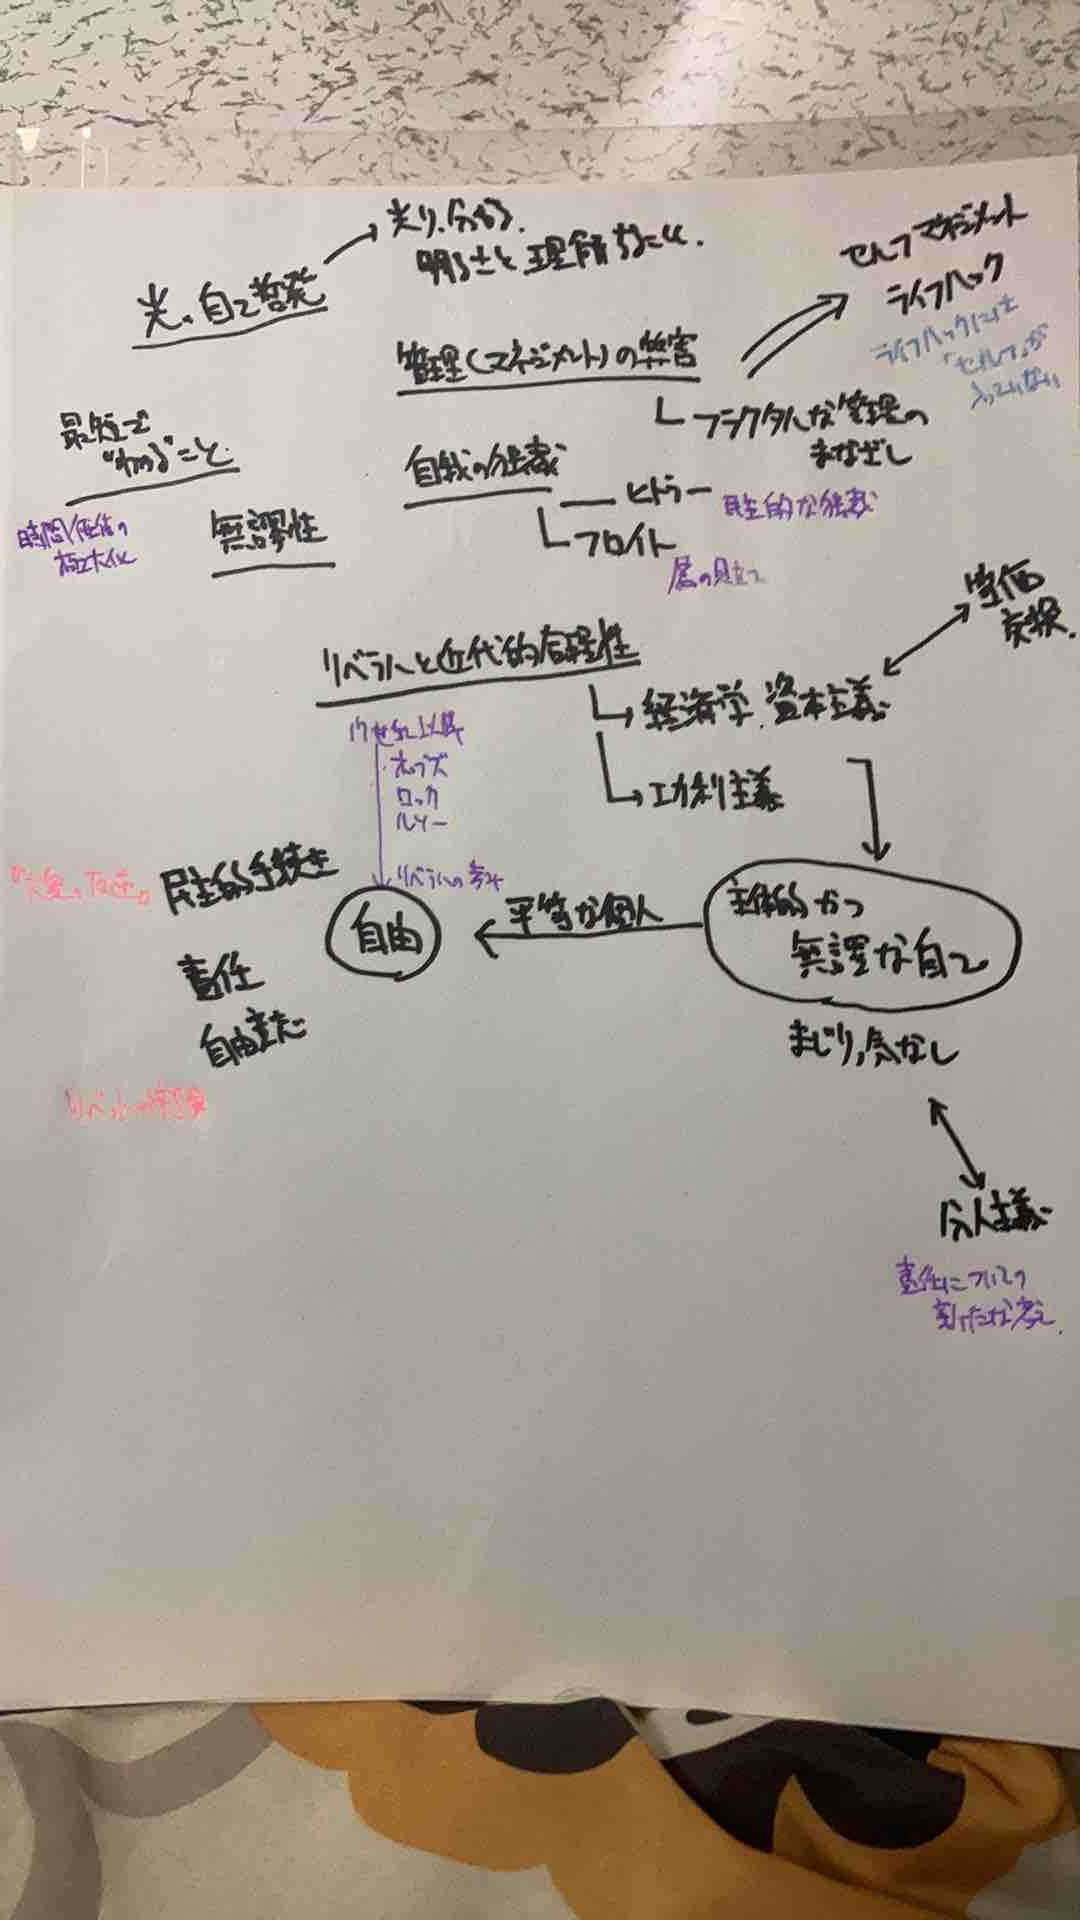 光り、分かる、
明るさと理解すること.
光、自己啓発
セルフマネジメント
ライフハック
ライフハックには
「セルフ」が
入っていない
管理(マネジメント)の弊害
フラクタルな管理の
まなざし
最短で
"わかる"こと.
時間/価値の
極大化
無謬性
自我の独裁
ヒトラー
民主的な独裁
フロイト
リベラルと近代的合理性
等価
交換.
経済学、資本主義
功利主義
17世紀以降
ホッブズ
ロック
ルソー
リベラルの考え
民主的手続き
自由
平等な個人
主体的かつ
無謬な自己
まじり気なし
責任
自由意志
リベットの実験
分人主義
責任についての
新たな考え.